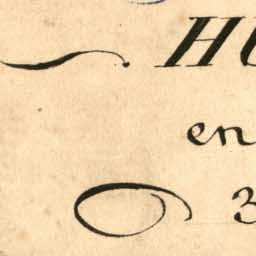 HU
en
3